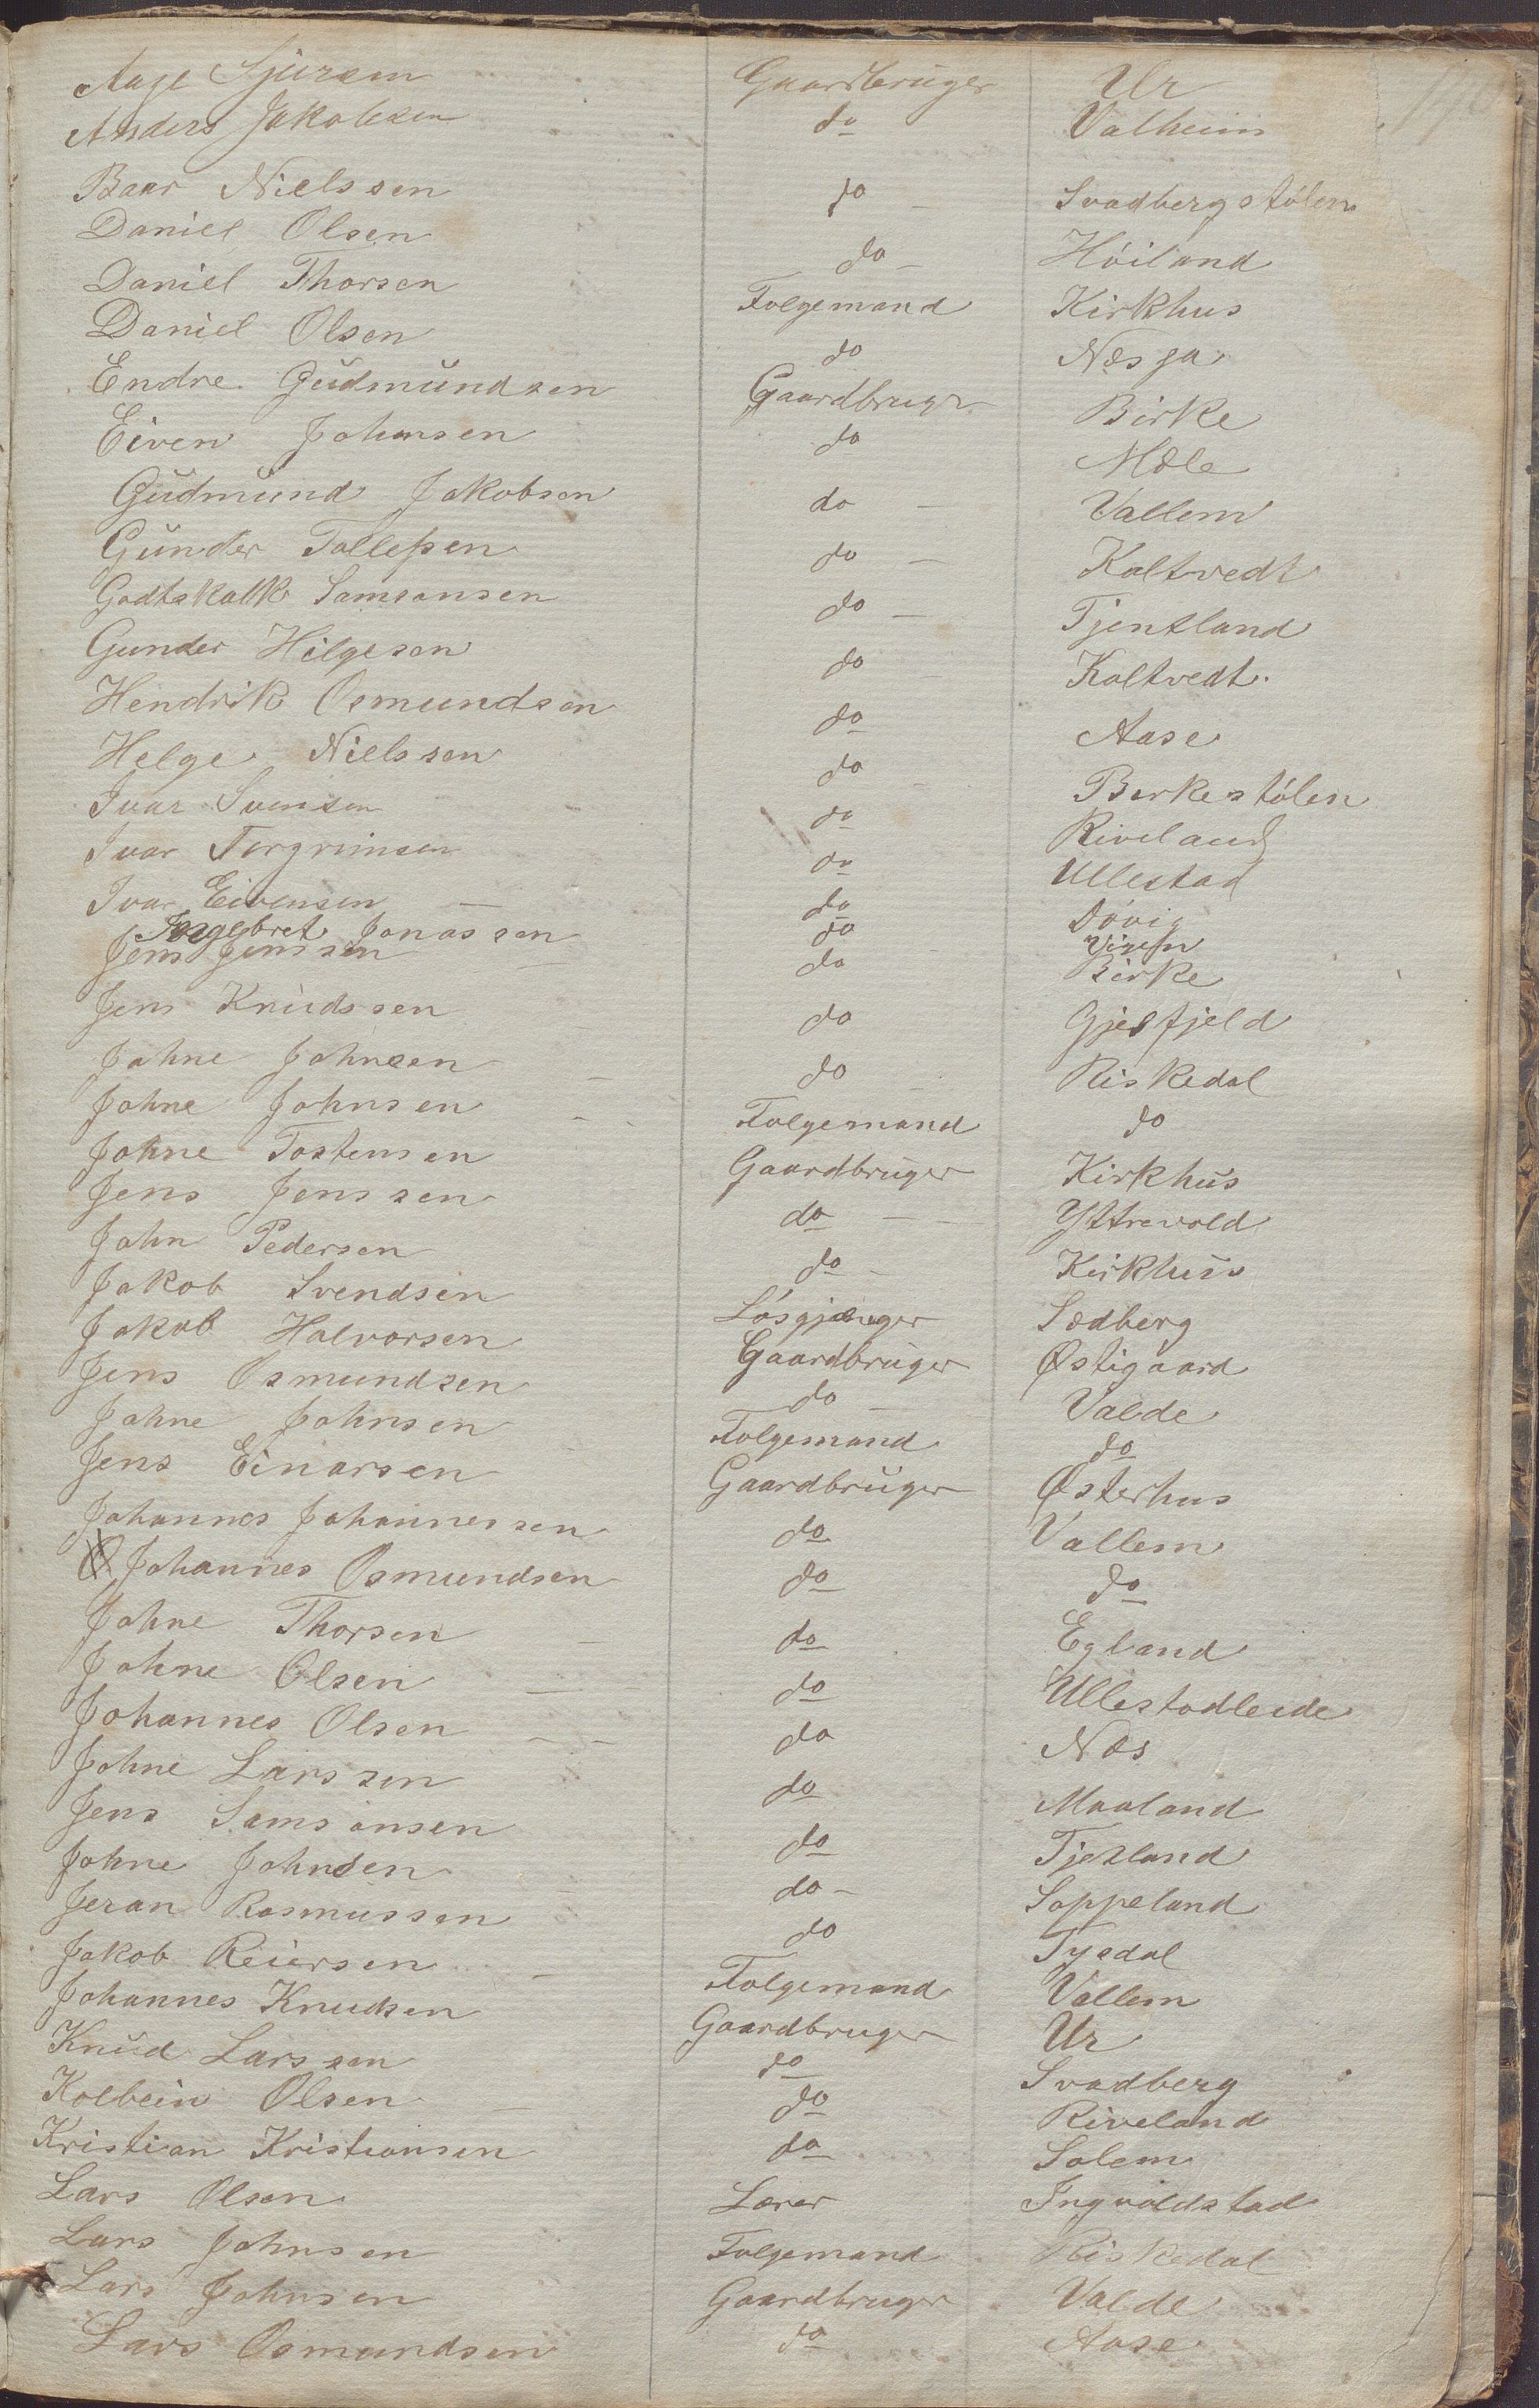 Aage Sjursen Gaardbruger Ur
Anders Jakobsen do Valheim
Baar Nielssen do Svadbergstølen
Daniel Olsen do Høiland
Daniel Thorsen Folgemand Kirkhus
Daniel Olsen do Nesja
Endre Gudmundsen Gaardbrugr Birke
Eiven Johansen do Mæle
Gudmund Jakobsen do Vallem
Gunder Tollefsen do Koltvedt
Godtskalk Samsonsen do Tjentland
Gunder Hilgesen do Koltvedt
Hendrik Osmundsen do Aase
Helge Nielssen do Berkestølen
Ivar Svensen do Riveland
Ivar Torgrimsen do Ullestad
Ivar Eivensen do Døvig
Ingebret Jonassen do
Jens Jenssen do Birke
Jens Knudssen do Gjesfjeld
Johne Johnsen do Riskedal
Johne Johnsen Folgemand do
Johne Tostensen Gaardbruger Kirkhus
Jens Jenssen do Yttrevold
John Pedersen do Kirkhus
Jakob Svendsen Løsgjænger Sædberg
Jakob Halvorsen Gaardbruger Østigaard
Jens Osmundsen do Valde
Johne Johnsen Folgemand do
Jens Einarsen Gaardbruger Østerhus
Johannes Johannessen do Vallem
Johannes Osmundsen do do
Johne Thorsen do Egland
Johne Olsen do Ullestadleede
Johannes Olsen do Næs
Johne Larssen do Maaland
Jens Samsonsen do Tjetland
Johne Johnsen do Soppeland
Jeran Rasmussen do Tysdal
Jakob Reiersen Folgemand Vallem
Johannes Knudsen Gaardbruger Ur
Knud Larssen do Svadberg
Kolbein Olsen do Riveland
Kristian Kristiansen do Solem
Lars Olsen Lærer Ingvoldstad
Lars Johnsen Folgemand Riskedal
Lars Johnsen Gaardbruger Valde
Lars Osmundsen do Aase